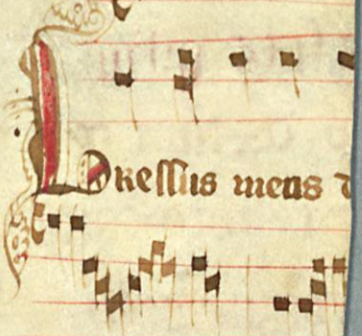 Gressus meus d